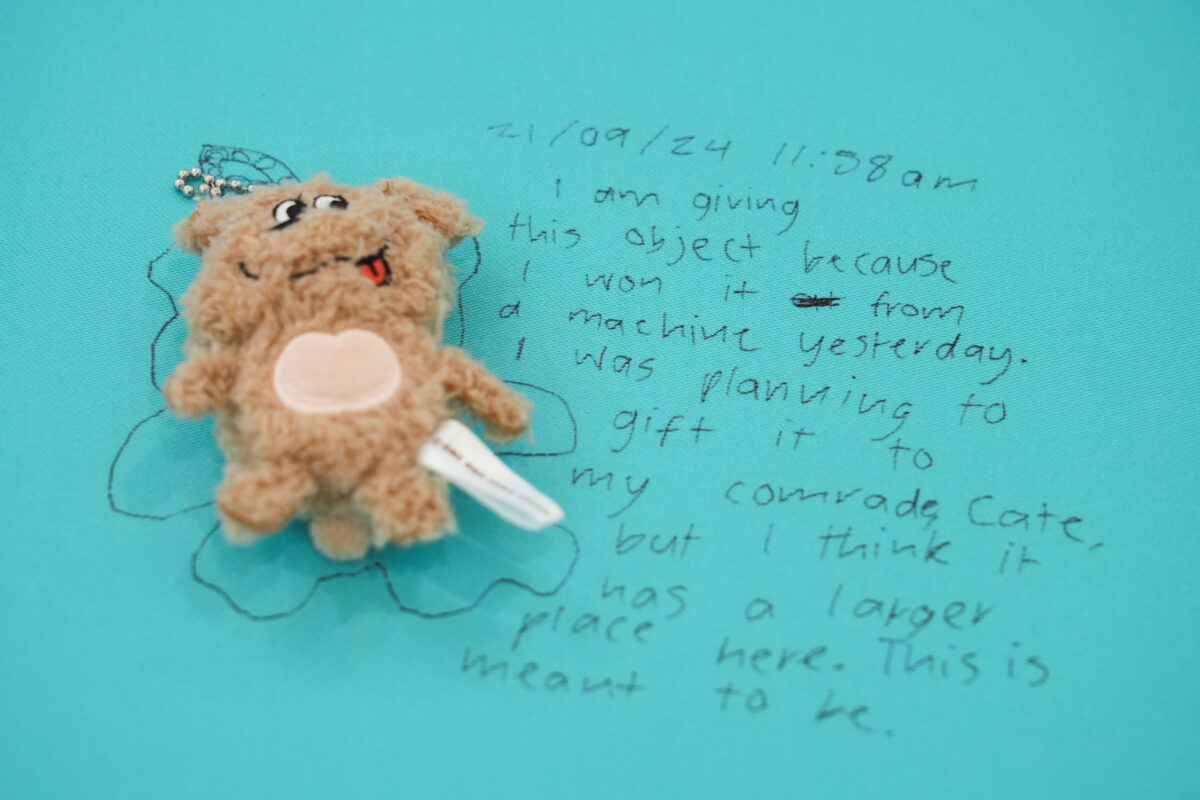 21/09/24 11:58am
I am giving
this object because
I won it from
a machine yesterday.
I was planning to
gift it to
my comrade, Cate,
but I think it
has a larger
place here. This is
meant to be.